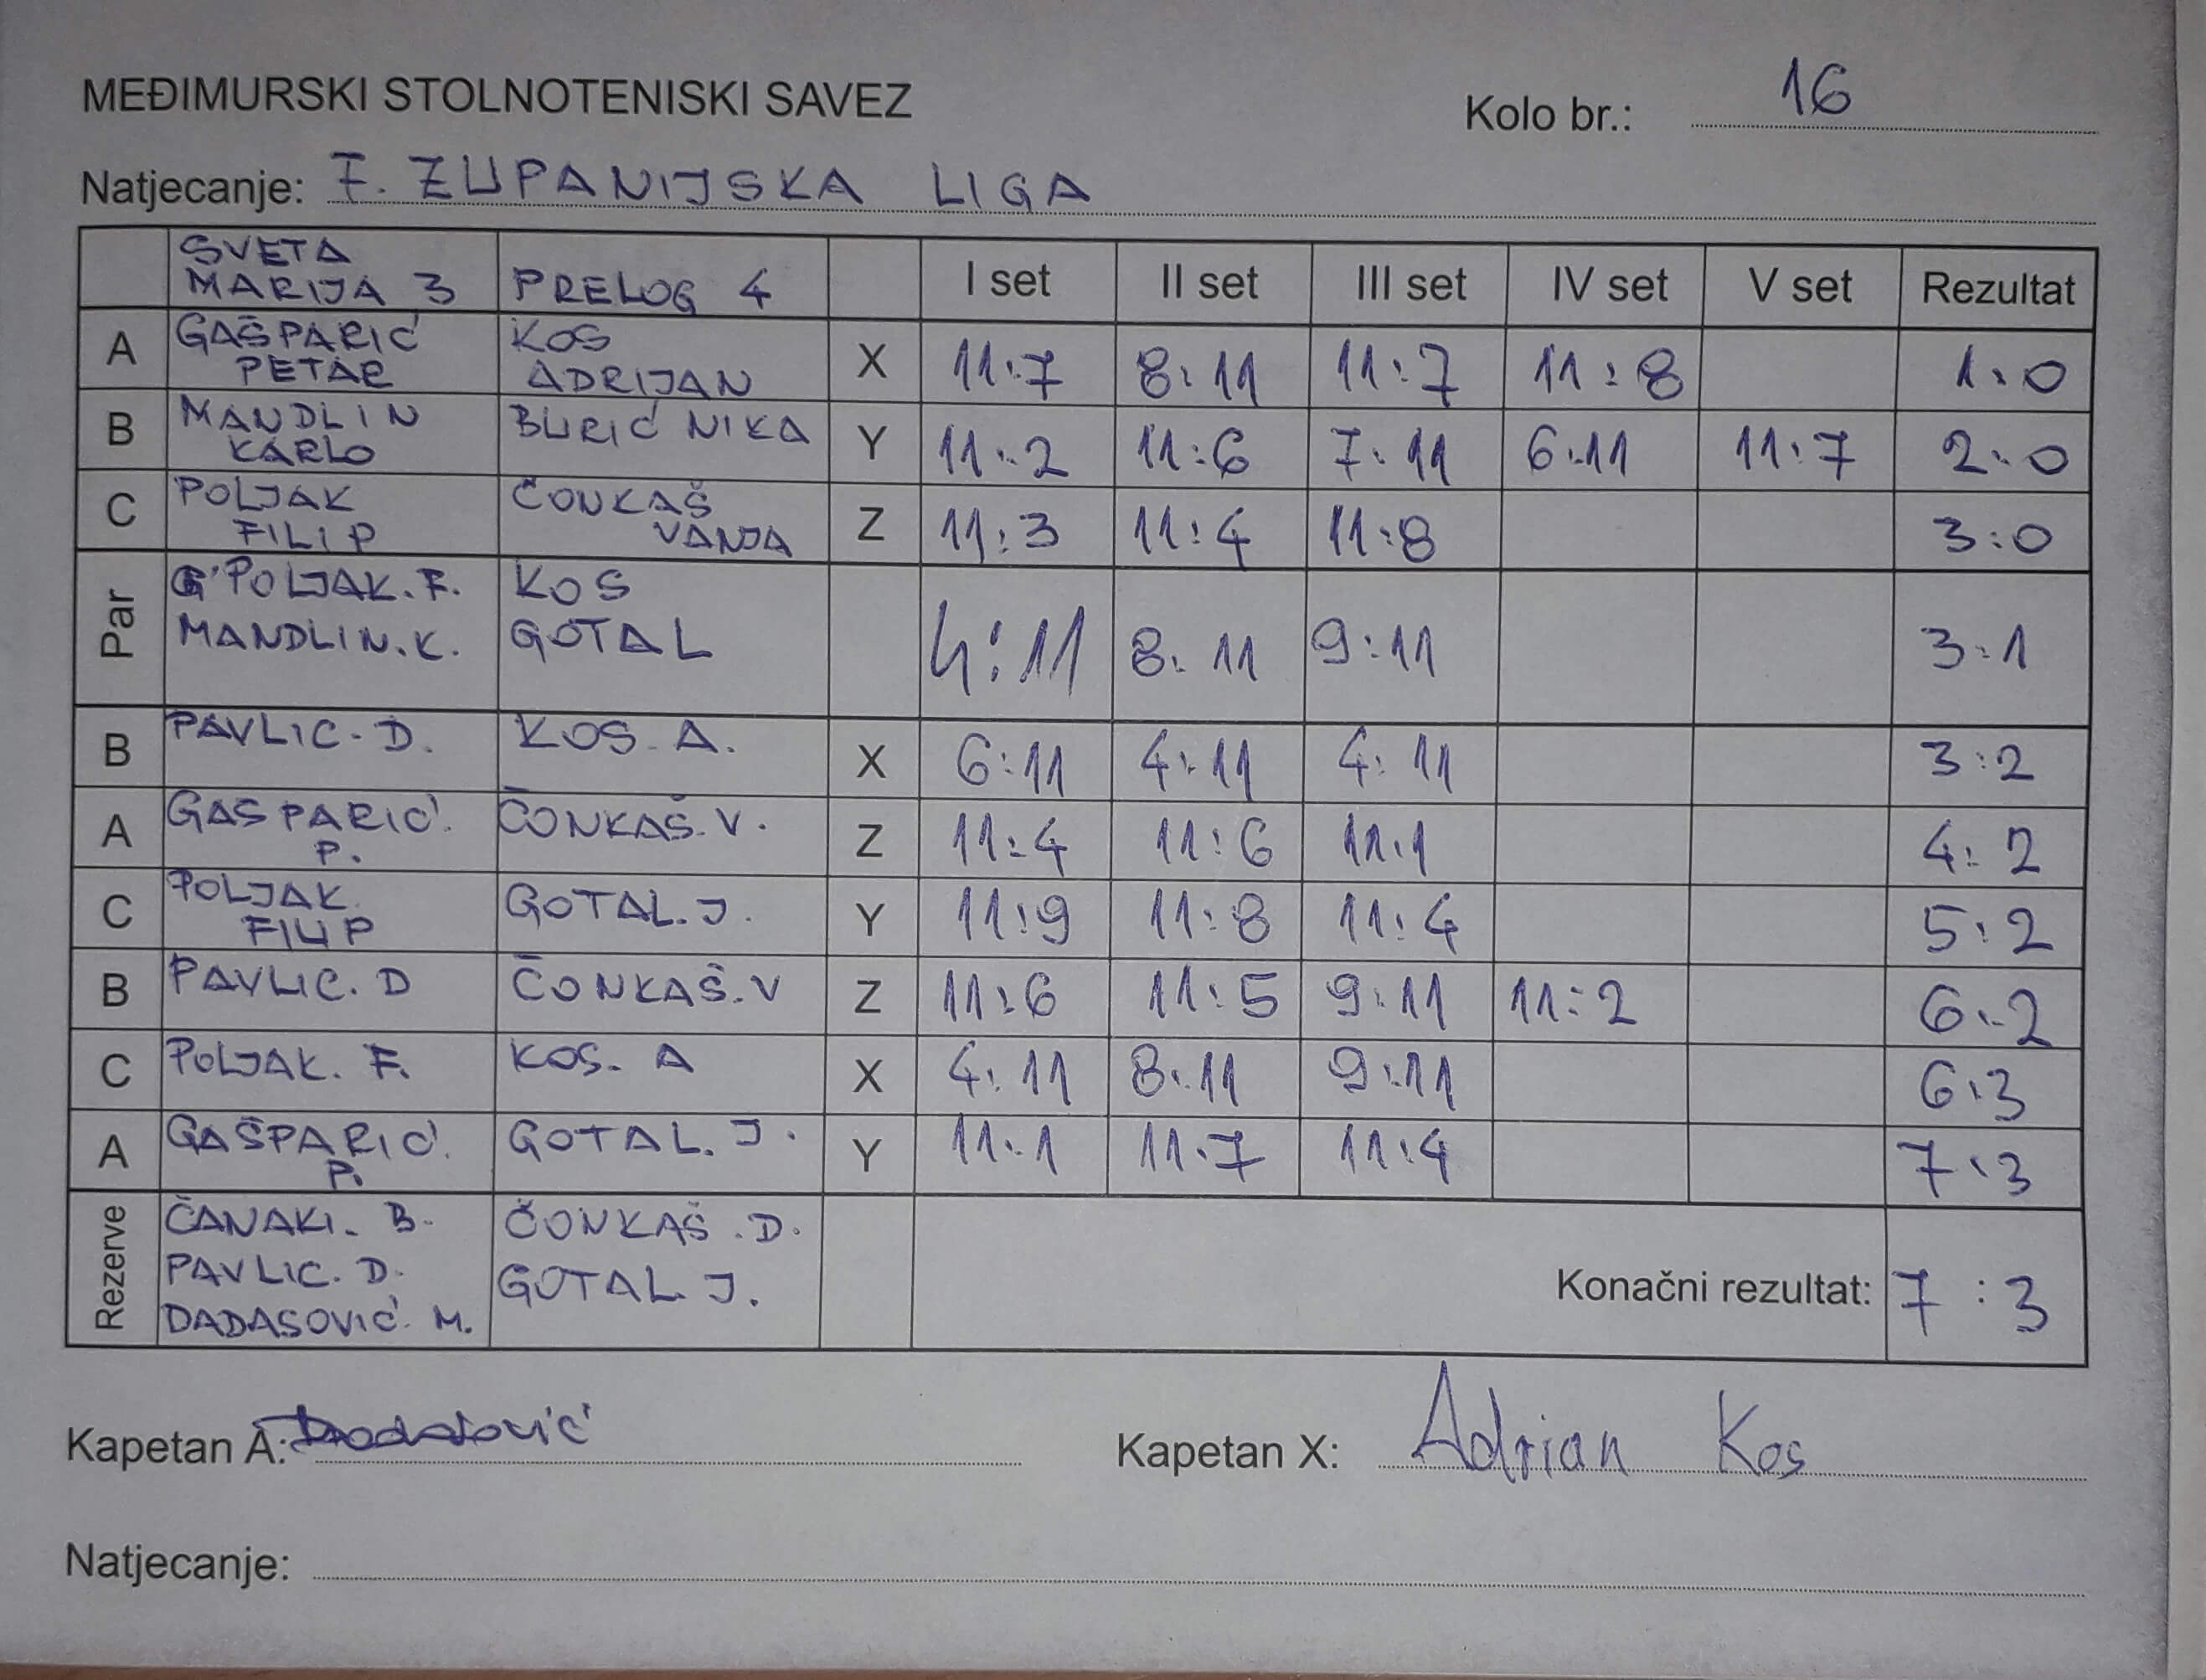 MEĐIMURSKI STOLNOTENISKI SAVEZ
Kolo br.: 16
Natjecanje: F. ZUPANIJSKA LIGA
SVETA MARIJA 3 PRELOG 4 I set II set III set IV set V set Rezultat
A GAŠPARIĆ PETAR KOS ADRIJAN X 11:7 8:11 11:7 11:8 1:0
B MANDLIN KARLO BURIĆ NIKA Y 11:2 11:6 7:11 6:11 11:7 2:0
C POLJAK FILIP ČONKAŠ VANJA Z 11:3 11:4 11:8 3:0
Par POLJAK. F. MANDLIN. K. KOS GOTAL 4:11 8:11 9:11 3:1
B PAVLIC. D. KOS. A. X 6:11 4:11 4:11 3:2
A GAŠPARIĆ. P. ČONKAŠ. V. Z 11:4 11:6 11:1 4:2
C POLJAK FILIP GOTAL. J. Y 11:9 11:8 11:4 5:2
B PAVLIC. D ČONKAŠ. V Z 11:6 11:5 9:11 11:2 6:2
C POLJAK. F. KOS. A X 4:11 8:11 9:11 6:3
A GAŠPARIĆ. P. GOTAL. J. Y 11:1 11:7 11:4 7:3
Rezerve ČANAKI. B. ČONKAŠ. D.
PAVLIC. D. GOTAL J. Konačni rezultat: 7:3
DADASOVIĆ. M.
Kapetan A: Kapetan X: Adrian Kos
Natjecanje: